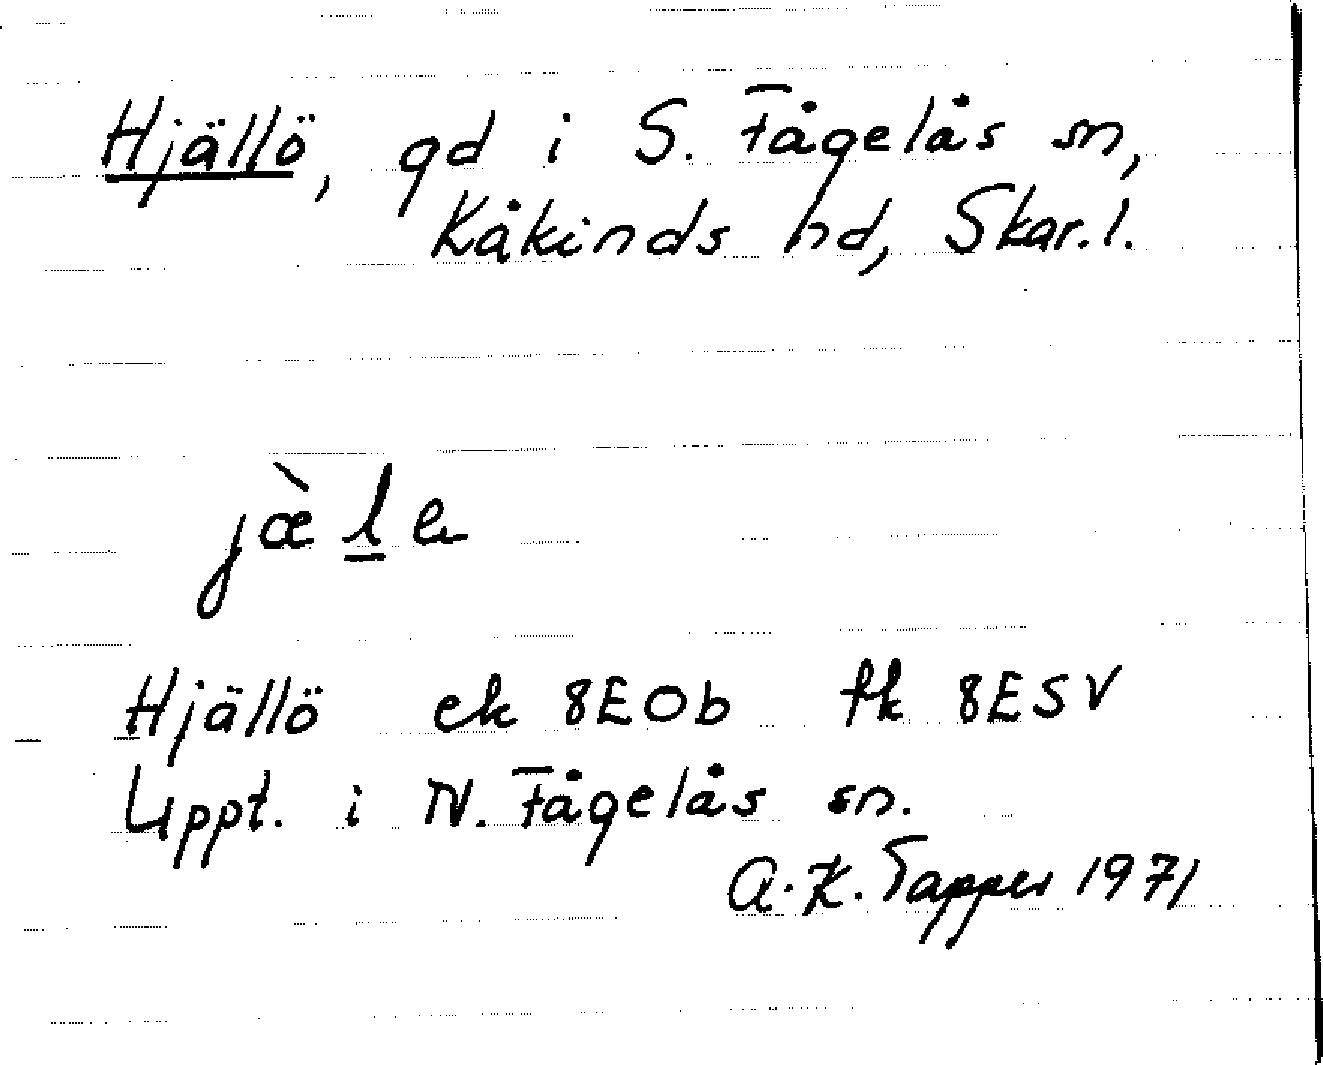 Hjällö, gd i S. Fågelås sn,
Kåkinds hd, Skar.l.
jæ̀l̲e
Hjällö ek 8EOb fk 8ESV
Uppt. i N. Fågelås sn.
A.K. Tapper 1971